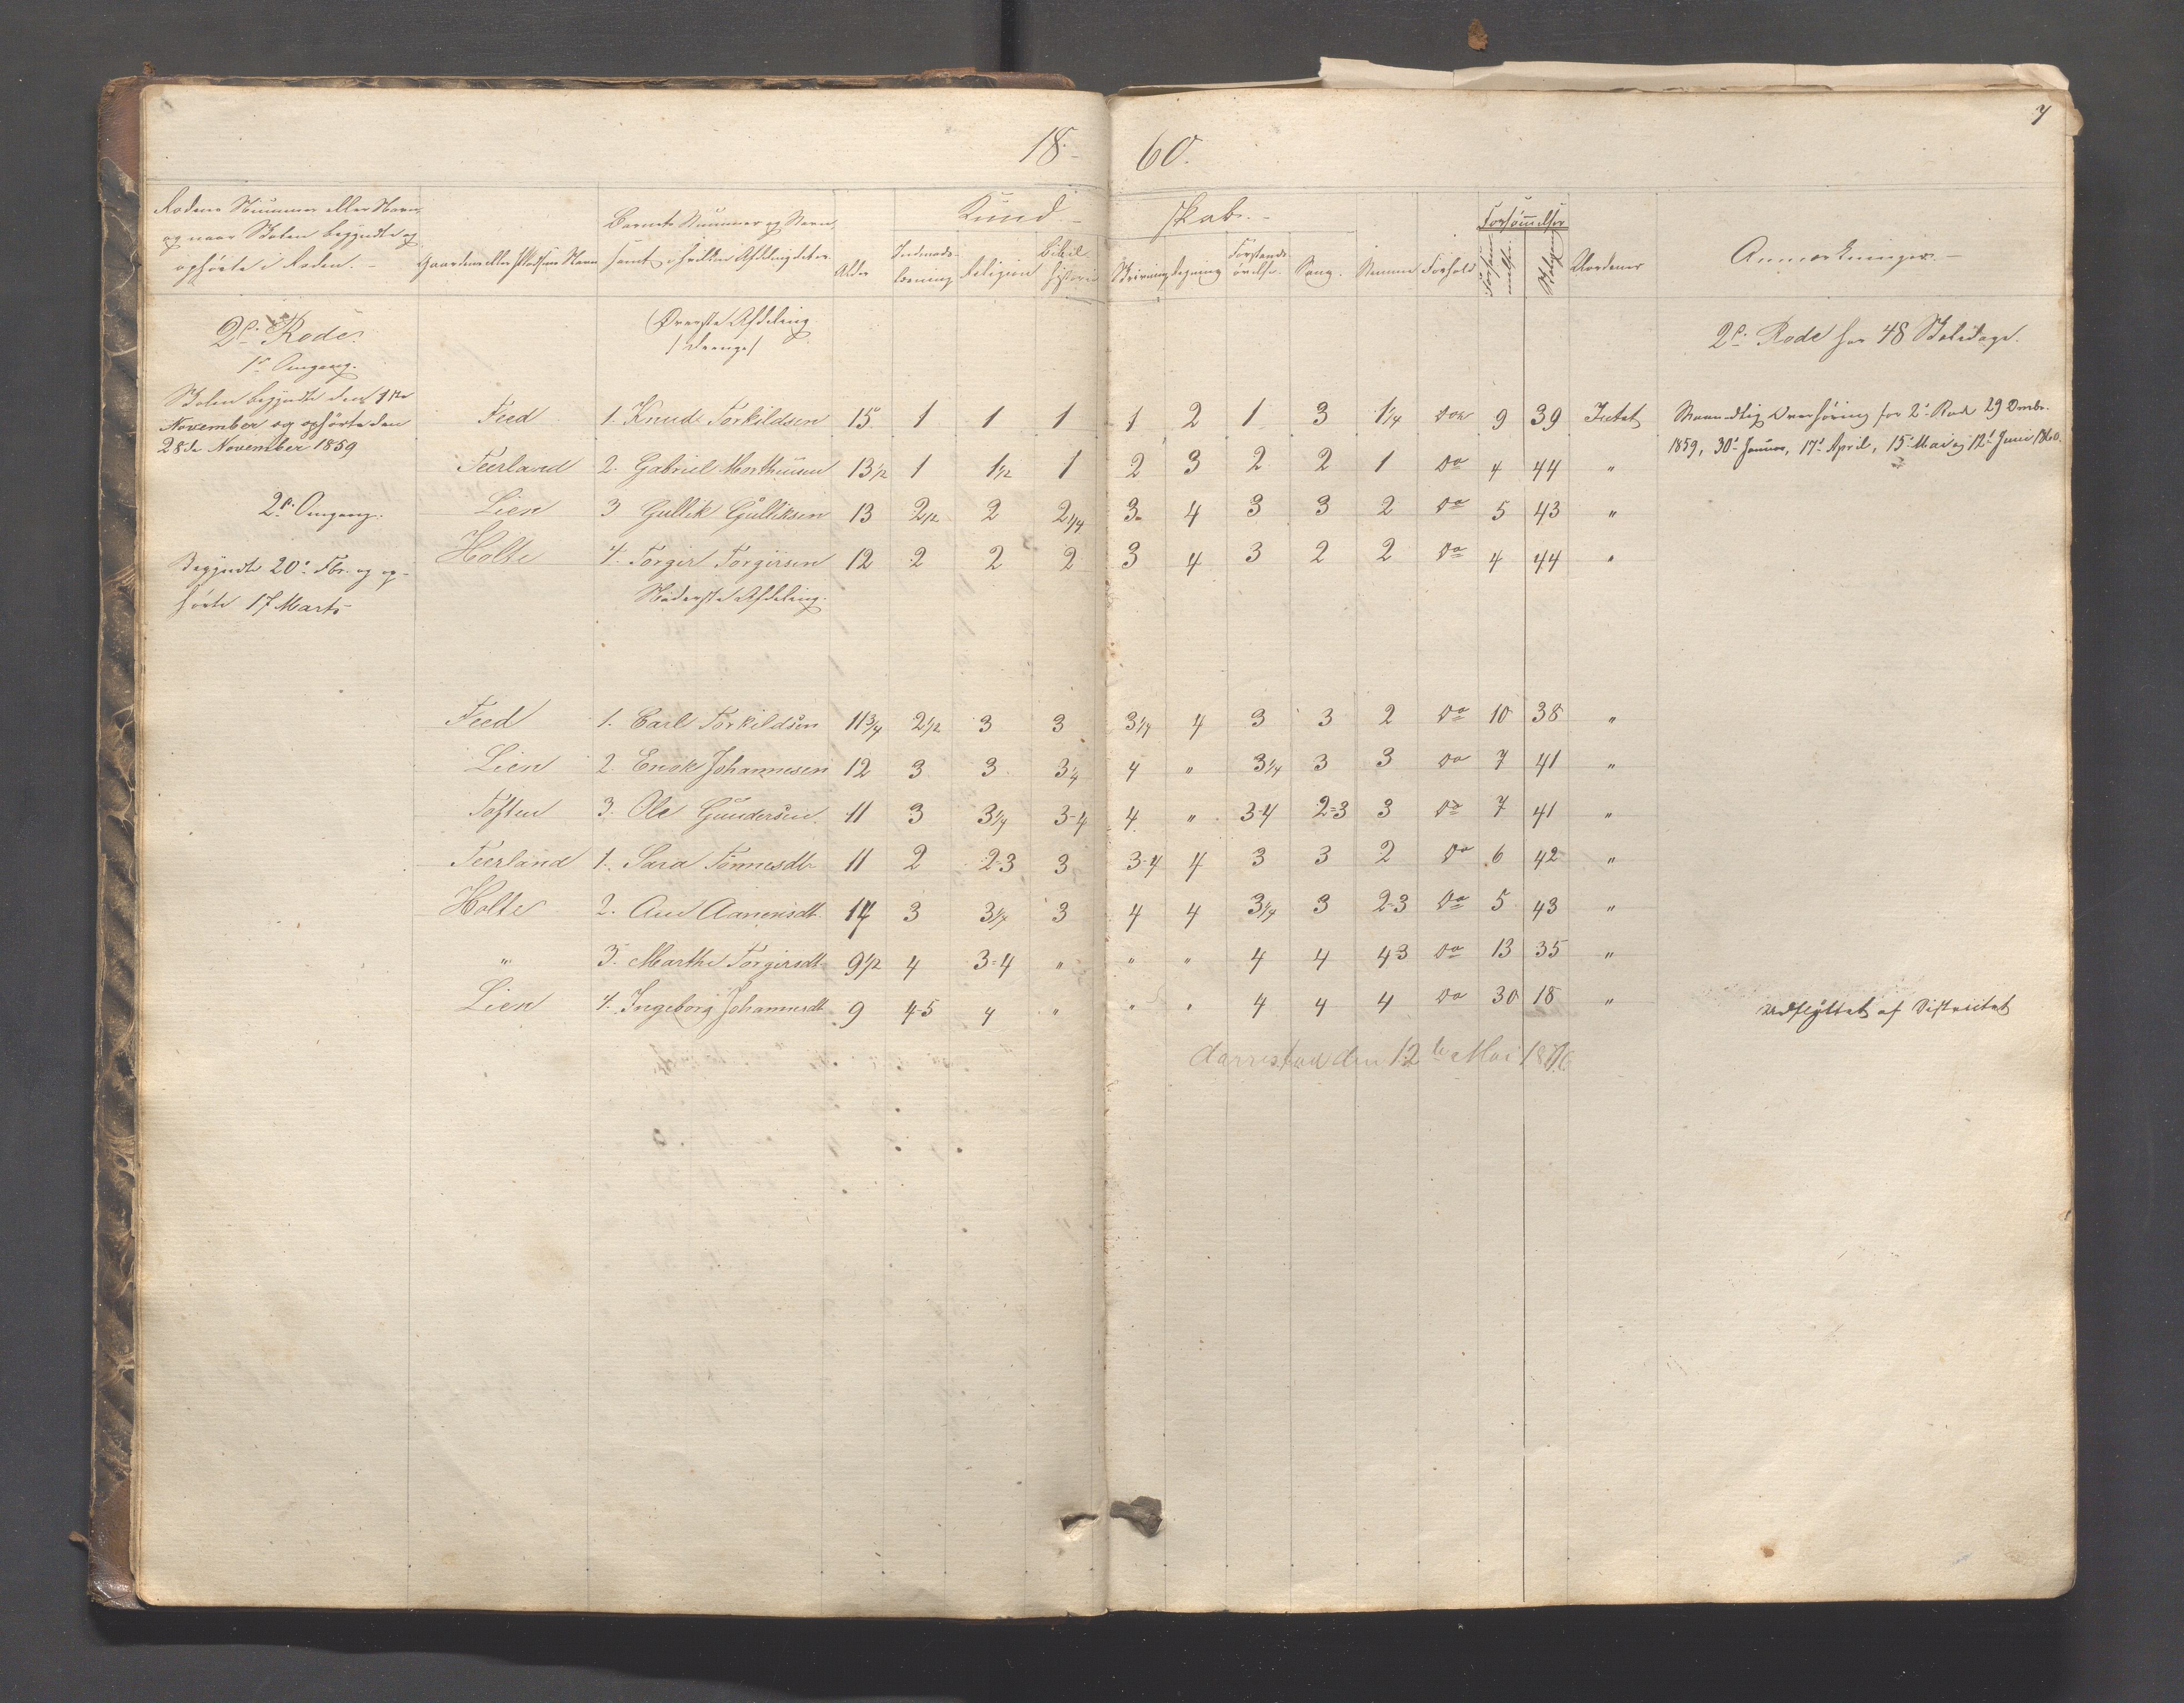 7
18 60.
Rodens Nummer eller Navn,
og naar Skolen begyndte og
ophørte i Roden.
Gaardens eller Pladsens Navn
Barnets Nummer og Navn,
samt i hvilken Afdeling det er
Alder
Kund skab.
Indenads-
læsning
Religion
Bibel-
historie
Skrivning
Regning
Forstands-
øvelse
Sang.
Numer
Forhold
Forsømmelser
Forsømmelse.
Uordener
Anmærkninger.
2den Rode.
1ste Omgang.
Øverste Afdeling
/ Drenge /
2den Rode har 48 Skoledage.
Skolen begyndte den 1ste
November og ophørte den
28de November 1859
2den Omgang.
Begyndte 20de Fbr. og op-
hørte 17 Marts
Feed 1. Knud Torkildsen 15 1 1 1 1 2 1 3 1 1/4 9 39 Intet
Maanedlig Overhøring for 2den Rode 29 Dmbr.
1859, 30te Januar, 17de April, 15de Mai og 12te Juni 1860.
Teerland 2. Gabriel Morthensen 13 1/2 1 1 1/2 1 2 3 2 2 1 Do 4 44 "
Lien 3 Gullik Gulliksen 13 2 1/2 2 2 1/4 3 4 3 3 2 Do 5 43 "
Holte 4. Torgir Torgirsen 12 2 2 2 3 4 3 2 2 Do 4 44 "
Nederste Afdeling.
Feed 1. Carl Torkildsen 11 3/4 2 1/2 3 3 3 1/4 4 3 3 2 Do 10 38 "
Lien 2. Enok Johannesen 12 3 3 3 1/4 4 " 3 1/4 3 3 Do 7 41 "
Toften 3. Ole Gundersen. 11 3 3 1/4 3-4 4 " 3-4 2-3 3 Do 7 41 "
Teerland 1. Sara Tønnesdtr 11 2 2-3 3 3-4 4 3 3 2 Do 6 42 "
Holte 2. Ane Aanensdt 14 3 3 1/4 3 4 4 3 1/4 3 2-3 Do 5 43 "
" 3. Marthe Torgirsdt 9 1/2 4 3-4 " " " 4 4 4-3 Do 13 35 "
Lien 4. Ingeborg Johannesdt 9 4-5 4 " " " 4 4 4 Do 30 18 "
udflyttet af Districtet
Aarrestad den 12te Mai